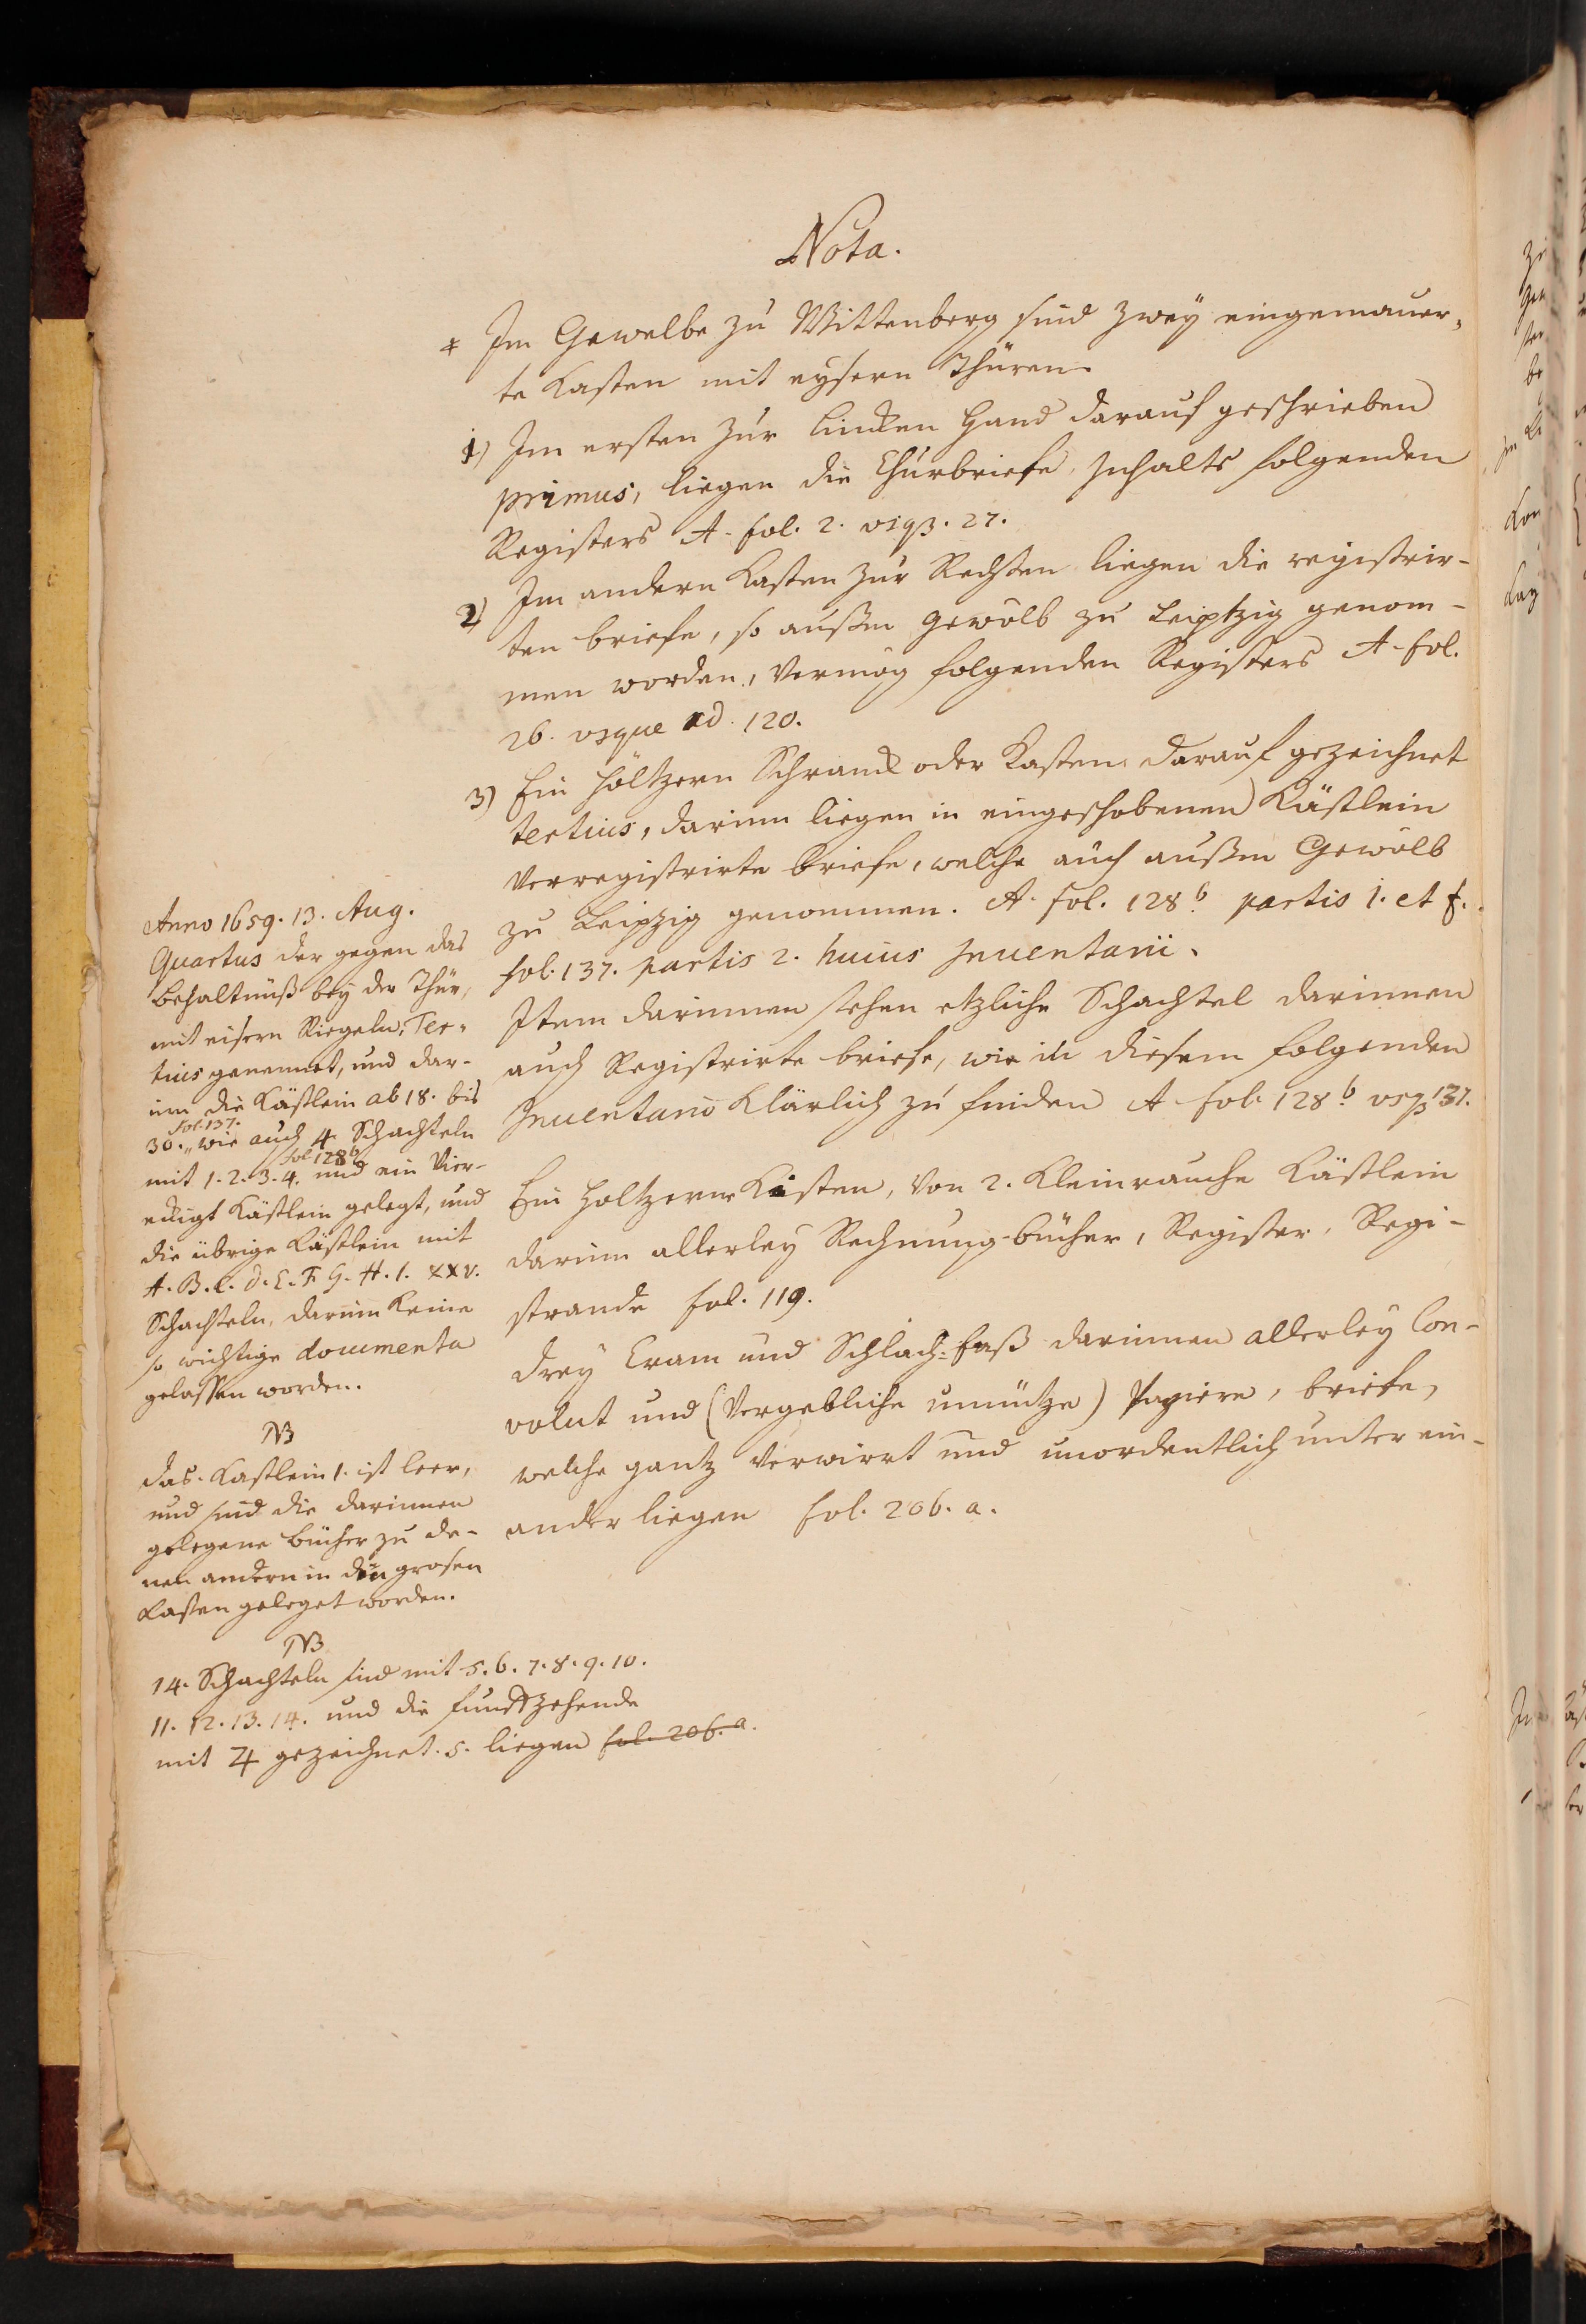 Nota.
* Im Gewelbe zu Wittenberg sind zweÿ eingemauer„
te Kasten mit eysern Thüren.
1) Im ersten zur lincken Hand darauf geschrieben
primus, liegen die Churbriefe, Inhalts folgenden
Registers A. fol. 2. vsqz. 27.
2) Im andern Kasten zur Rechten liegen die registrir-
ten briefe, so außm gewölb zu Leiptzig genom-
men worden, vermög folgenden Registers A. fol.
26. vsque ad. 120.
3) Ein höltzern Schranck oder Kasten darauf gezeichnet
tertius, darinn liegen in eingeschobenen Kästlein
verregistrirte briefe, welche auch außm Gewölb
zu Leipzig genommen. A. fol. 128 b. partis 1. et
fol. 137. partis 2. huius Inuentarii.
Item darinnen stehen etzliche Schachtel darinnen
auch Registrirte briefe, wie in diesem folgenden
Inuentario klärlich zu finden A fol. 128 b vsqz 137.
Ein holtzerne Kisten, von 2. Kleinrauche Kästlein
darinn allerleÿ Rechnung-bücher, Register, Regi-
strande fol. 119.
Dreÿ Cram und Schlach-faß darinnen allerleÿ Con-
volut und (vergebliche unnütze) Papiere, briefe,
welche gantz verwirrt und unordentlich unter ein-
ander liegen fol. 206. a.
Anno 1659. 13. Aug.
Quartus der gegen das
behaltnüß beÿ der Thür,
mit eisern Riegeln, Ter-
tius genennet, und dar-
inn die Kästlein ab 18. bis
fol. 137.
30. „ wie auch 4. Schachteln
fol 128 b
mit 1. 2. 3. 4. und ein Vier-
eckigt Kästlein gelegt, und
die übrige Kästlein mit
A. B. C. D. E. F. G. H. I. XXV.
Schachteln, darinn keine
so wichtige documenta
gelassen worden.
NB
das Kastlein 1. ist leer,
und sind die darinnen
gelegene bücher zu de-
nen andern in den grosen
Kasten geleget worden.
NB
14. Schachteln sind mit 5. 6. 7. 8. 9. 10.
11. 12. 13. 14. und die funfftzehende
mit ♃ gezeichnet. 5. liegen fol. 206. a.